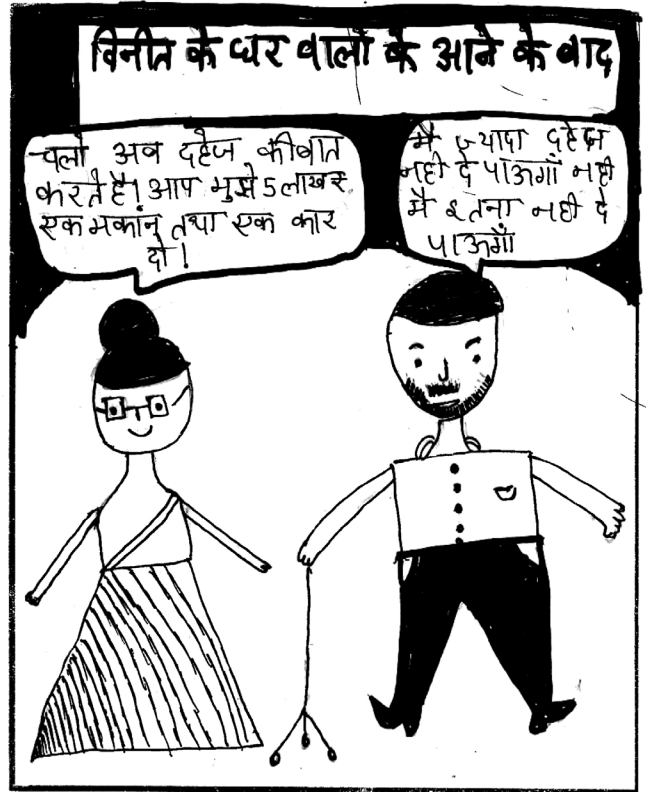 विनीत के घर वालों के आने के बाद
चलो अब दहेज की बात
करते है। आप मुझे 5 लाख रु
एक मकांन तथा एक कार
दो!
मै ज्यादा दहेज
नही दे पाऊगाँ नही
मै इतना नही दे
पाऊगाँ